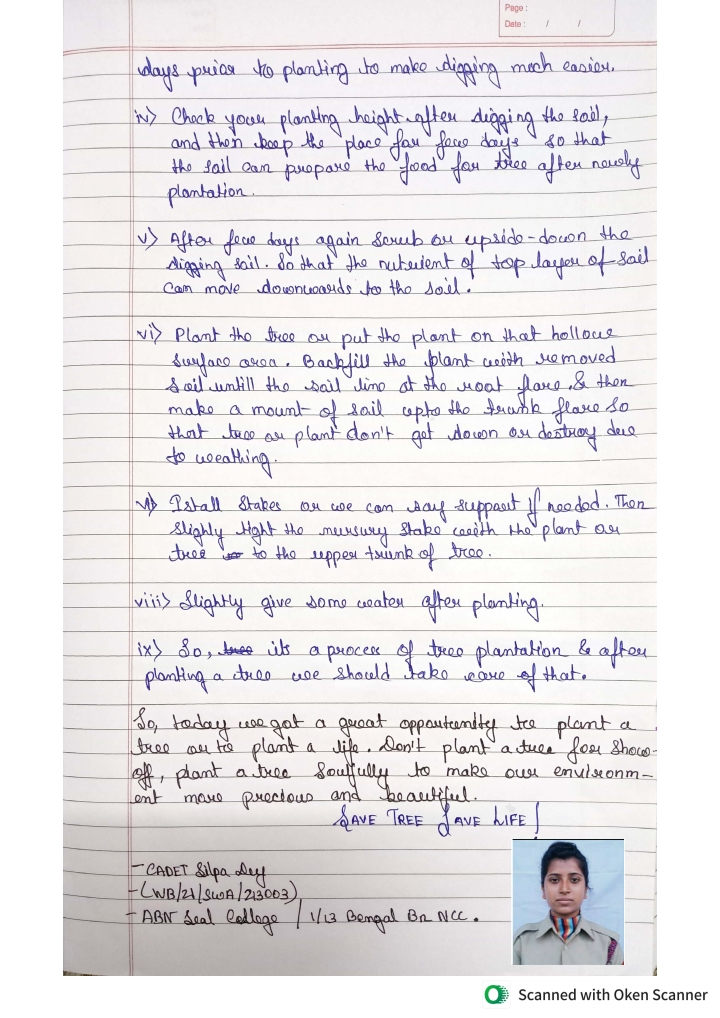 Page :
Date : / /
days prior to planting to make digging much easier.
iv> Check your planting height after digging the soil,
and then keep the place for few days so that
the soil can prepare the food for tree after newly
plantation.
v> After few days again scrub or upside-down the
digging soil. So that the nutrient of top layer of soil
can move downwards to the soil.
vi> Plant the tree or put the plant on that hollow
surface area. Backfill the plant with removed
soil untill the soil line at the root flare & then
make a mount of soil upto the trunk flare so
that tree or plant don't get down or destroy due
to weathing.
vii> Istall stakes or we can say support if needed. Then
slighly tight the nursury stake with the plant or
tree to the upper trunk of tree.
viii> Slightly give some water after planting.
ix> So, tree its a process of tree plantation & after
planting a tree we should take care of that.
So, today we got a great opportunity to plant a
tree or to plant a life. Don't plant a tree for show-
off, plant a tree soulfully to make our environm-
ent more precious and beautiful.
SAVE TREE SAVE LIFE!
- CADET Silpa Dey
- (WB/21/SWA/213003)
- ABN Seal College / 1/13 Bengal Bn NCC.
Scanned with Oken Scanner